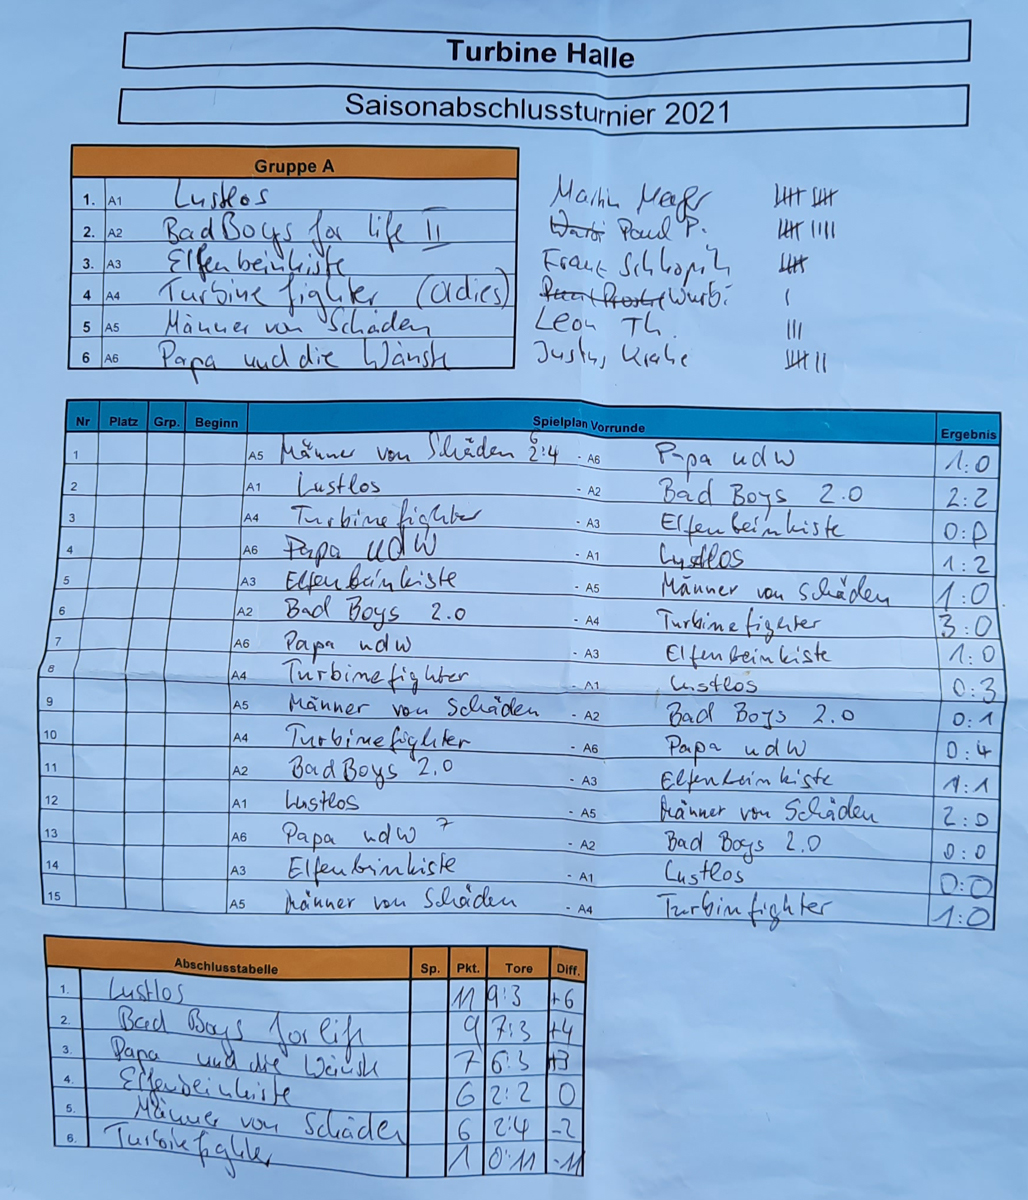 Turbine Halle
Saisonabschlussturnier 2021
Gruppe A
1. A1 Lustlos
2. A2 Bad Boys for life II
3. A3 Elfenbeinkiste
4 A4 Turbine fighter (Oldies)
5 A5 Männer von Schäden
6 A6 Papa und die Wänste
Martin
Paul P.
Franz
Wurbi
Leon Th.
Justus Krahe
Nr Platz Grp. Beginn Spielplan Vorrunde Ergebnis
1 A5 Männer von Schäden 6 2:4 - A6 Papa udW 1:0
2 A1 Lustlos - A2 Bad Boys 2.0 2:2
3 A4 Turbinefighter - A3 Elfenbeinkiste 0:0
4 A6 Papa udW - A1 Lustlos 1:2
5 A3 Elfenbeinkiste - A5 Männer von Schäden 1:0
6 A2 Bad Boys 2.0 - A4 Turbinefighter 3:0
7 A6 Papa udW - A3 Elfenbeinkiste 1:0
8 A4 Turbinefighter - A1 Lustlos 0:3
9 A5 Männer von Schäden - A2 Bad Boys 2.0 0:1
10 A4 Turbinefighter - A6 Papa udW 0:4
11 A2 Bad Boys 2.0 - A3 Elfenbeinkiste 1:1
12 A1 Lustlos - A5 Männer von Schäden 2:0
13 A6 Papa udW 7 - A2 Bad Boys 2.0 0:0
14 A3 Elfenbeinkiste - A1 Lustlos 0:0
15 A5 Männer von Schäden - A4 Turbinfighter 1:0
Abschlusstabelle Sp. Pkt. Tore Diff.
1. Lustlos 11 9:3 +6
2. Bad Boys for life 9 7:3 +4
3. Papa und die Wänste 7 6:3 +3
4. Elfenbeinkiste 6 2:2 0
5. Männer von Schäden 6 2:4 -2
6. Turbinefighter 1 0:11 -11